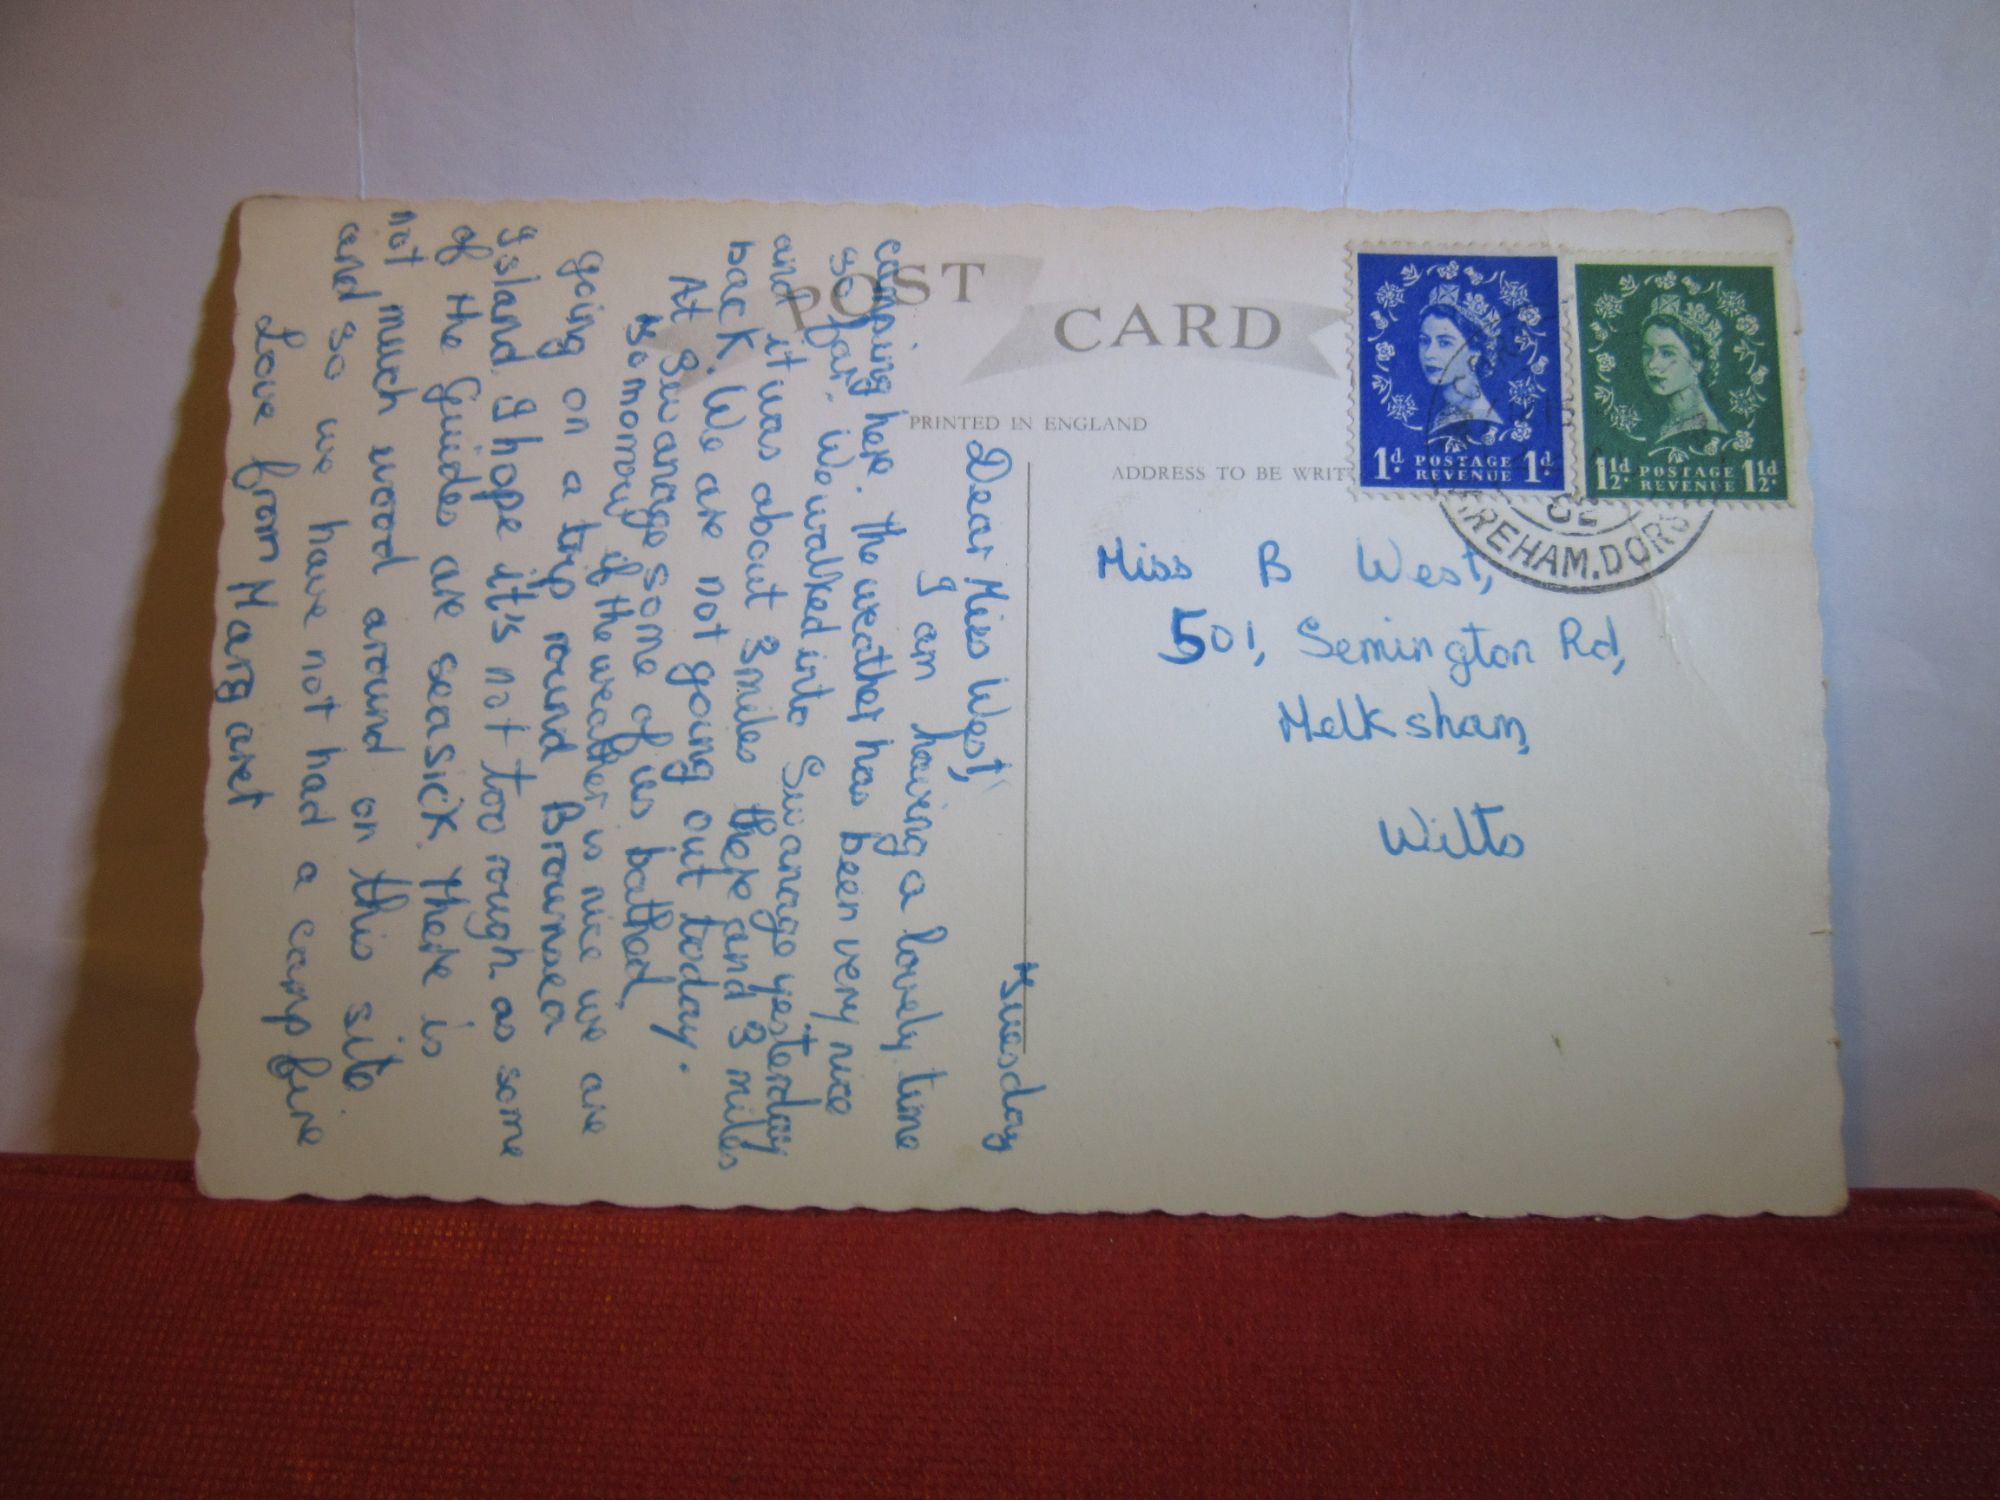 POST CARD
PRINTED IN ENGLAND
ADDRESS TO BE WRIT
1d. POSTAGE REVENUE 1d.
1½d. POSTAGE REVENUE 1½d.
62
REHAM.DORS
Miss B West,
501, Semington Rd,
Melksham,
Wilts
Tuesday
Dear Miss West,
I am having a lovely time
camping here. The weather has been very nice
so far. We walked into Swanage yesterday
and it was about 3 miles there and 3 miles
back. We are not going out today.
At Swanage some of us bathed.
Tomorrow if the weather is nice we are
going on a trip round Brownsea
Island. I hope it's not too rough as some
of the Guides are seasick. There is
not much wood around on this site
and so we have not had a camp fire
Love from Margaret